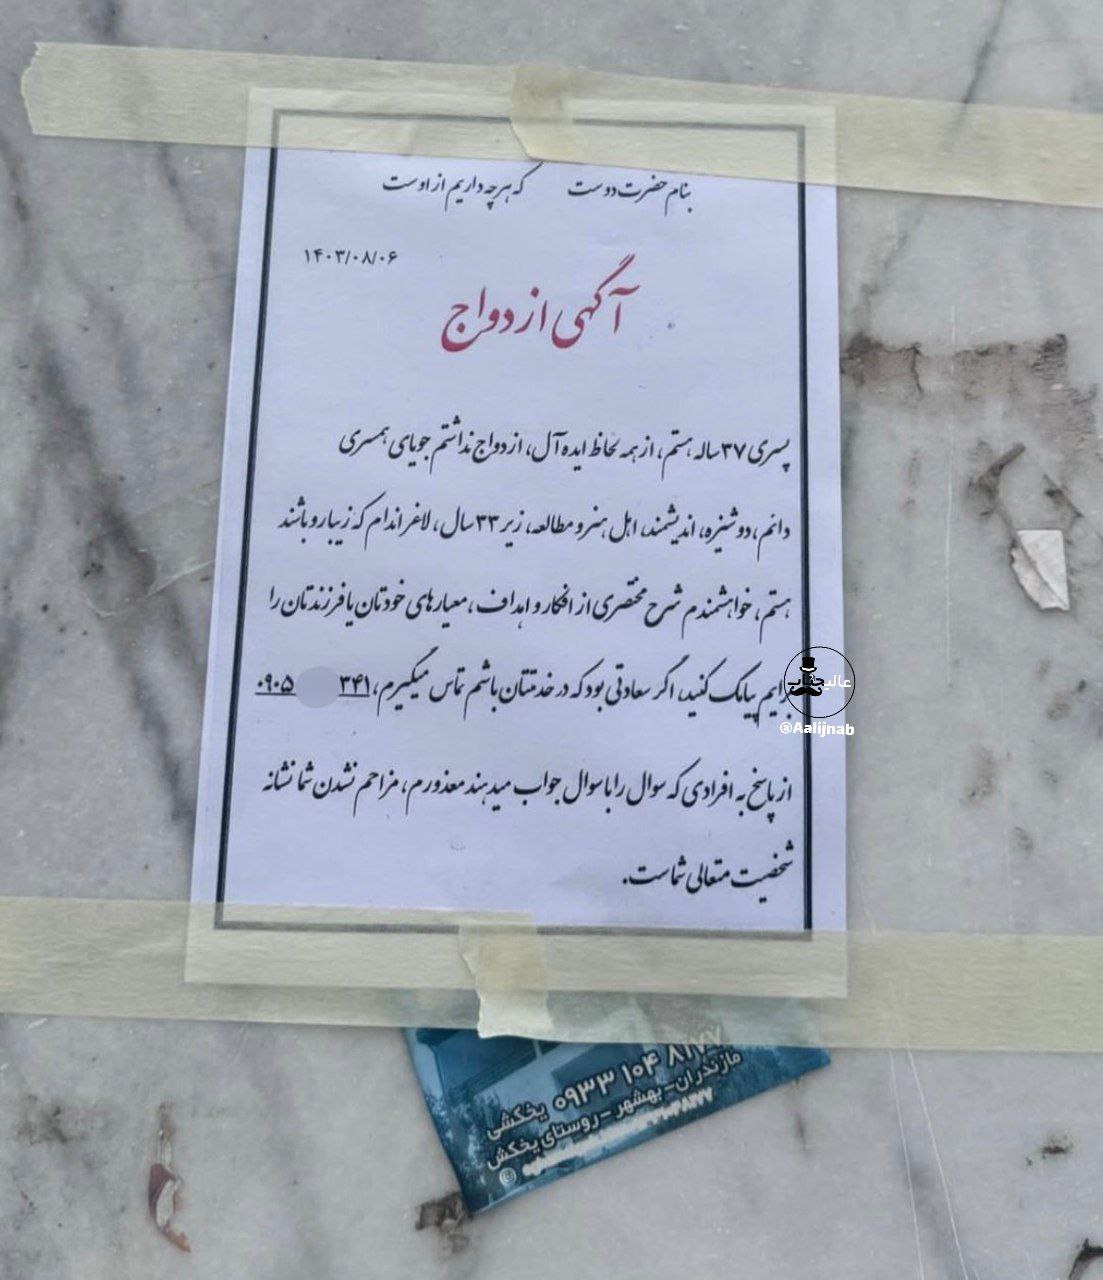 بنام حضرت دوست که هرچه داریم از اوست
۱۴۰۳/۰۸/۰۶
آگهی ازدواج
پسری ۳۷ ساله هستم، از همه لحاظ ایده آل، ازدواج نداشتم جویای همسری
دانم، دوشیزه، اندیشمند، اهل هنر و مطالعه، زیر ۳۳ سال، لاغر اندام که زیبارو باشند
هستم، خواهشمندم شرح مختصری از افکار و اهداف، معیارهای خودتان یا فرزندتان را
برایم پیامک کنید، اگر سعادتی بود که در خدمتتان باشم تماس میگیرم، ۳۴۱ ۰۹۰۵
عالیجناب
@Aalijnab
از پاسخ به افرادی که سوال را با سوال جواب میدهند معذورم، مزاحم نشدن شما نشانه
شخصیت متعالی شماست.
۰۹۳۳ ۱۰۴ ۸۱۷۷ یخکشی
مازندران - بهشهر - روستای یخکش